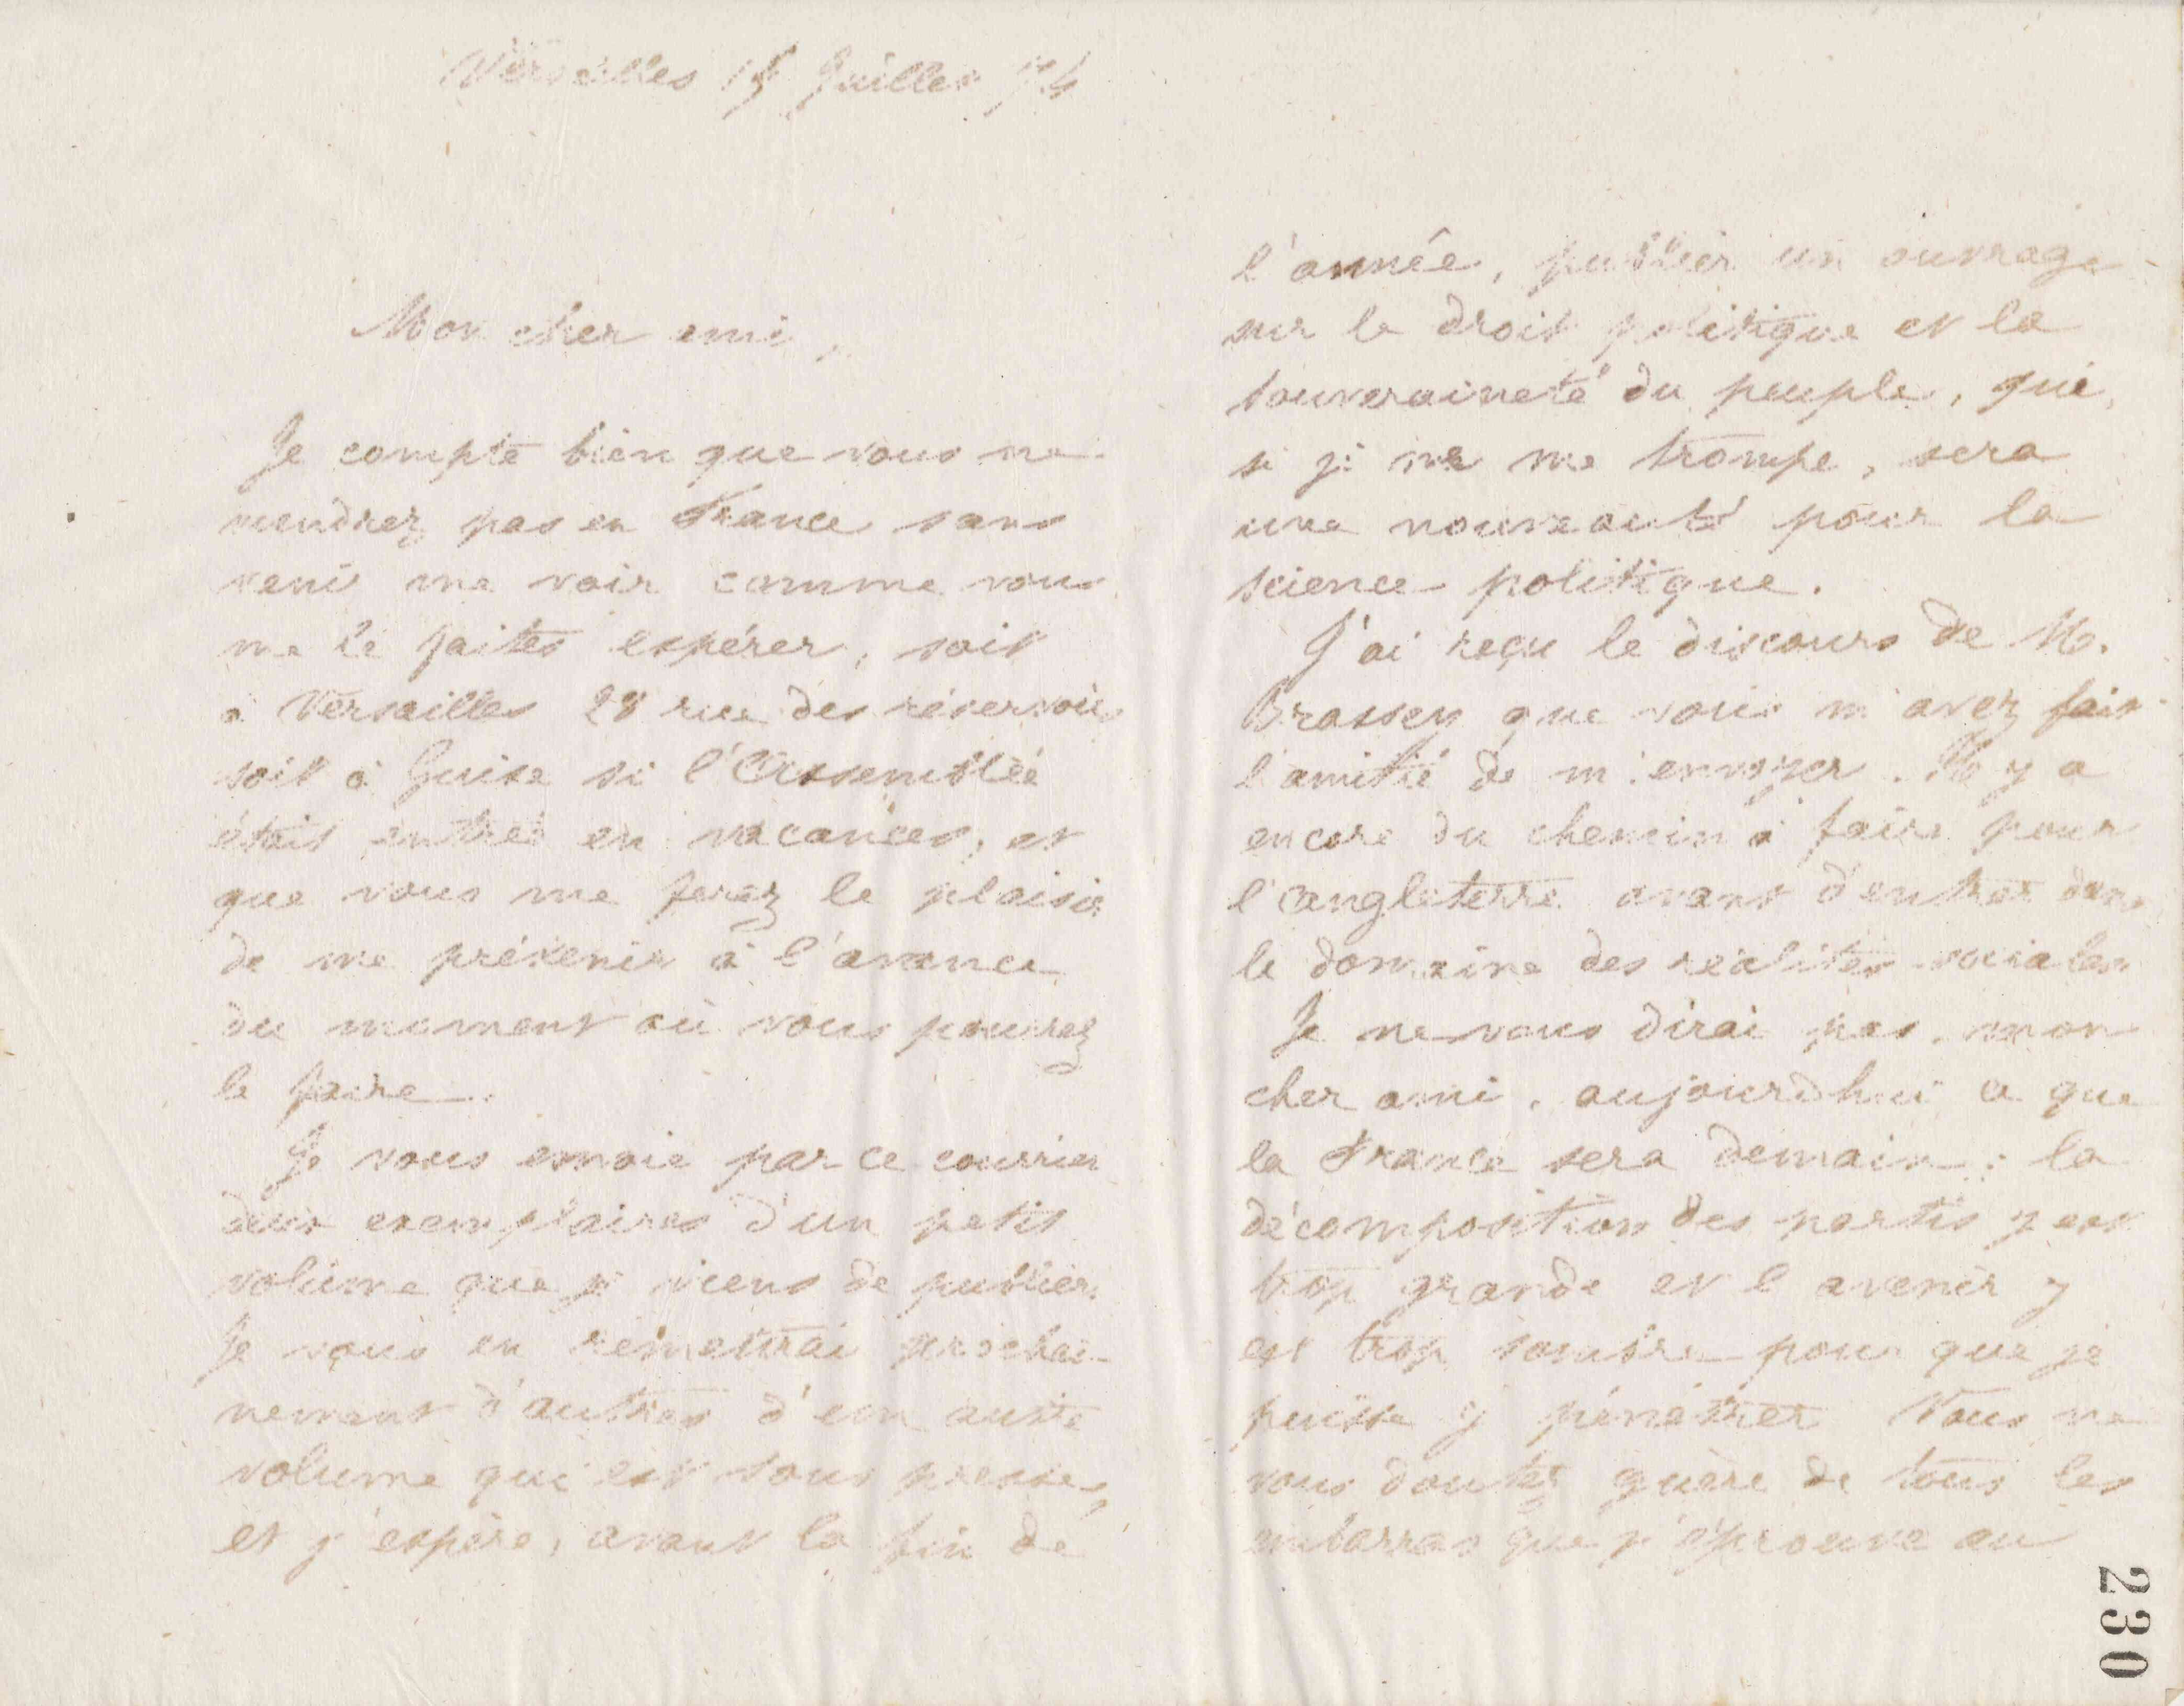 Versailles 15 Juillet 74
Mon cher ami,
Je compte bien que vous ne
viendrez pas en France sans
venir me voir comme vous
me le faites espérer, soit
à Versailles 28 rue des réservoirs
soit à Guise si l'Assemblée
était entrée en vacances, et
que vous me ferez le plaisir
de me prévenir à l'avance
du moment où vous pourrez
le faire.
Je vous envoie par ce courrier
deux exemplaires d'un petit
volume que je viens de publier.
Je vous en remettrai prochai-
nement d'autres d'un autre
volume qui est sous presse,
et j'espère, avant la fin de
l'année, publier un ouvrage
sur le droit politique et la
souveraineté du peuple, qui,
si je ne me trompe, sera
une nouveauté pour la
science politique.
J'ai reçu le discours de M.
Brassey que vous m'avez fait
l'amitié de m'envoyer. Il y a
encore du chemin à faire pour
l'angleterre avant d'entrer dans
le domaine des réalités sociales
Je ne vous dirai pas, mon
cher ami, aujourd'hui ce que
la France sera demain; la
décomposition des partis y est
trop grande et l'avenir y
est trop sombre pour que je
puisse y pénétrer Vous ne
vous doutez guère de tous les
embarras que j'éprouve au
230